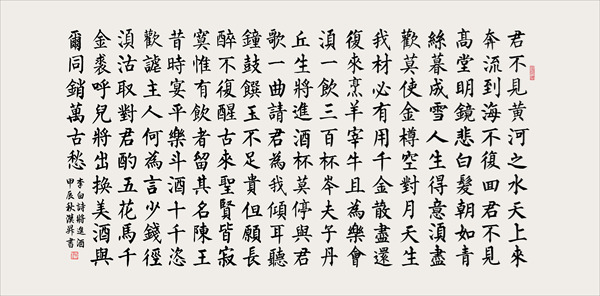 君不見黃河之水天上來
奔流到海不復囬君不見
髙堂明鏡悲白髮朝如青
絲暮成雪人生得意湏盡
歡莫使金樽空對月天生
我材必有用千金散盡還
復來烹羊宰牛且為樂會
湏一飲三百杯岑夫子丹
丘生將進酒杯莫停與君
歌一曲請君為我傾耳聽
鐘鼓饌玉不足貴但願長
醉不復醒古來聖賢皆寂
寞惟有飲者留其名陳王
昔時宴平樂斗酒十千恣
歡謔主人何為言少錢徑
湏沽取對君酌五花馬千
金裘呼兒將出換美酒與
爾同銷萬古愁
李白詩將進酒
甲辰秋漢書